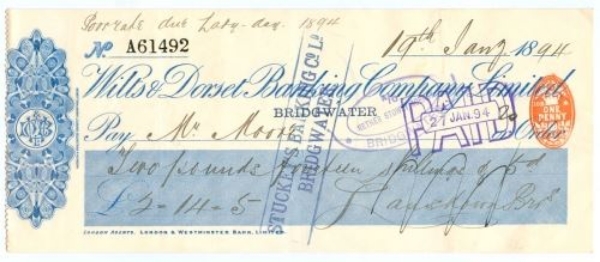 Poor rate due Lady-day. 1894
No. A61492
19th Jany 1894
Wilts & Dorset Banking Company Limited
BRIDGWATER
Pay Mr Moore
Order
ONE PENNY
PAID
27 JAN. 94
STUCKEY'S BANKING CO. LD.
BRIDGWATER
Two pounds fourteen shillings & 5d
£2-14-5
LONDON AGENTS, LONDON & WESTMINSTER BANK, LIMITED.